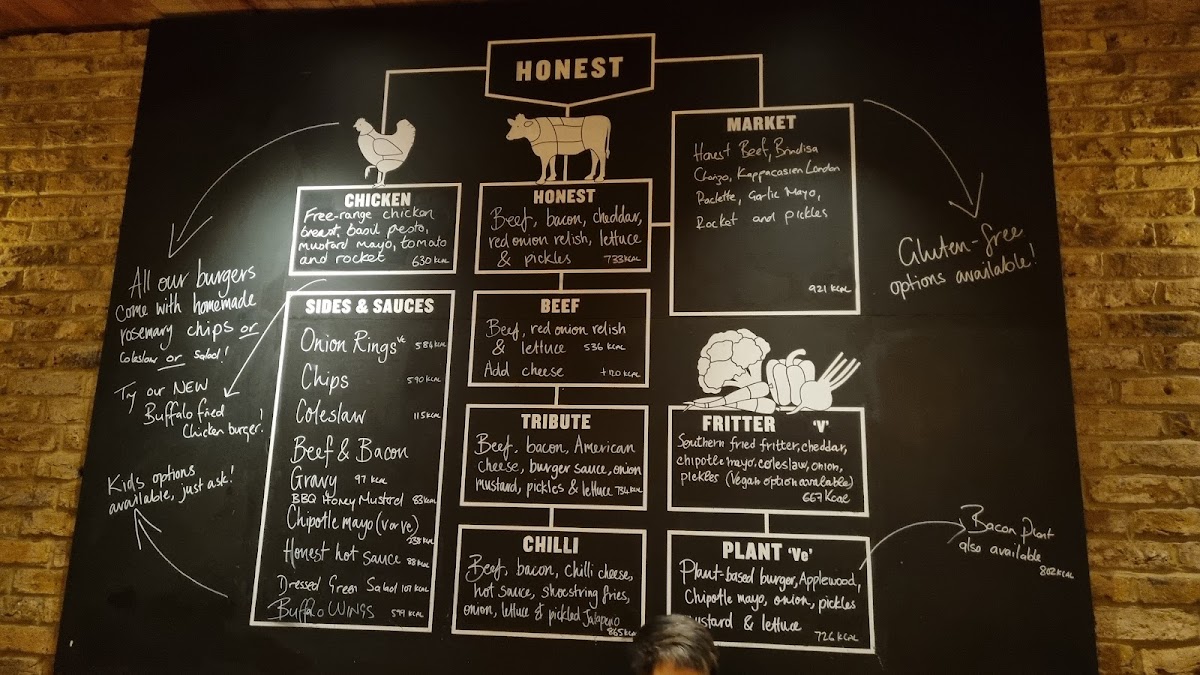 HONEST
CHICKEN
Free-range chicken
breast, basil pesto,
mustard mayo, tomato
and rocket 630 KCAL
HONEST
Beef, bacon, cheddar,
red onion relish, lettuce
& pickles 733 KCAL
MARKET
Honest Beef, Brindisa
Chorizo, Kappacasien London
Raclette, Garlic Mayo,
Rocket and pickles
921 KCAL
Gluten-free
options available!
All our burgers
come with homemade
rosemary chips or
Coleslaw or Salad!
Try our NEW
Buffalo fried
Chicken burger!
Kids options
available, just ask!
SIDES & SAUCES
Onion Rings Ve 584 KCAL
Chips 590 KCAL
Coleslaw 115 KCAL
Beef & Bacon
Gravy 97 KCAL
BBQ Honey Mustard 83 KCAL
Chipotle mayo (V or Ve)
238 KCAL
Honest hot sauce 88 KCAL
Dressed Green Salad 107 KCAL
Buffalo WINGS 579 KCAL
BEEF
Beef, red onion relish
& lettuce 536 KCAL
Add cheese +120 KCAL
TRIBUTE
Beef, bacon, American
cheese, burger sauce, onion
mustard, pickles & lettuce 734 KCAL
CHILLI
Beef, bacon, chilli cheese,
hot sauce, shoestring fries,
onion, lettuce & pickled Jalapeno
865 KCAL
FRITTER 'V'
Southern fried fritter, cheddar,
chipotle mayo, coleslaw, onion,
pickles (Vegan option available)
667 Kcal
PLANT 'Ve'
Plant-based burger, Applewood,
Chipotle mayo, onion, pickles
ustard & lettuce
726 KCAL
Bacon Plant
also available
802 KCAL